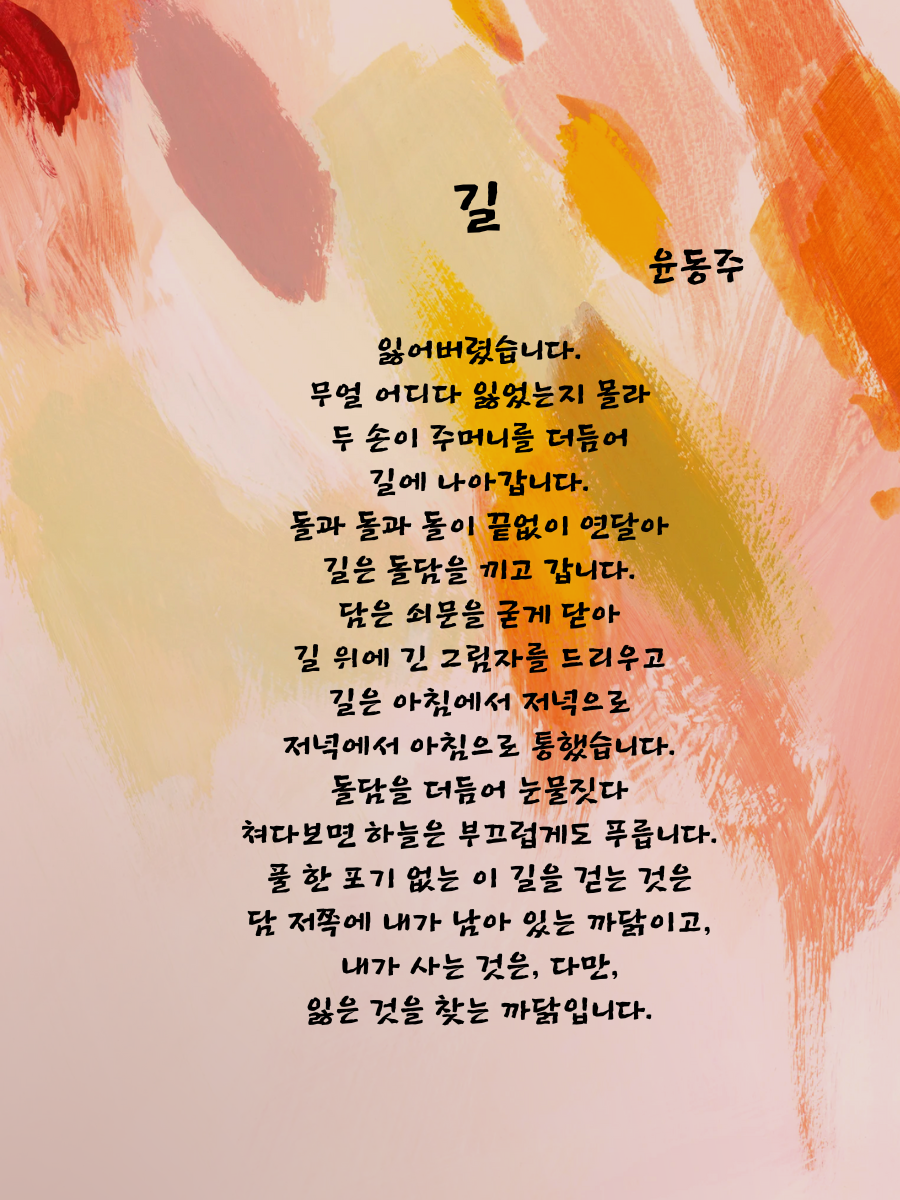 길
윤동주
잃어버렸습니다.
무얼 어디다 잃었는지 몰라
두 손이 주머니를 더듬어
길에 나아갑니다.
돌과 돌과 돌이 끝없이 연달아
길은 돌담을 끼고 갑니다.
담은 쇠문을 굳게 닫아
길 위에 긴 그림자를 드리우고
길은 아침에서 저녁으로
저녁에서 아침으로 통했습니다.
돌담을 더듬어 눈물짓다
쳐다보면 하늘은 부끄럽게도 푸릅니다.
풀 한 포기 없는 이 길을 걷는 것은
담 저쪽에 내가 남아 있는 까닭이고,
내가 사는 것은, 다만,
잃은 것을 찾는 까닭입니다.